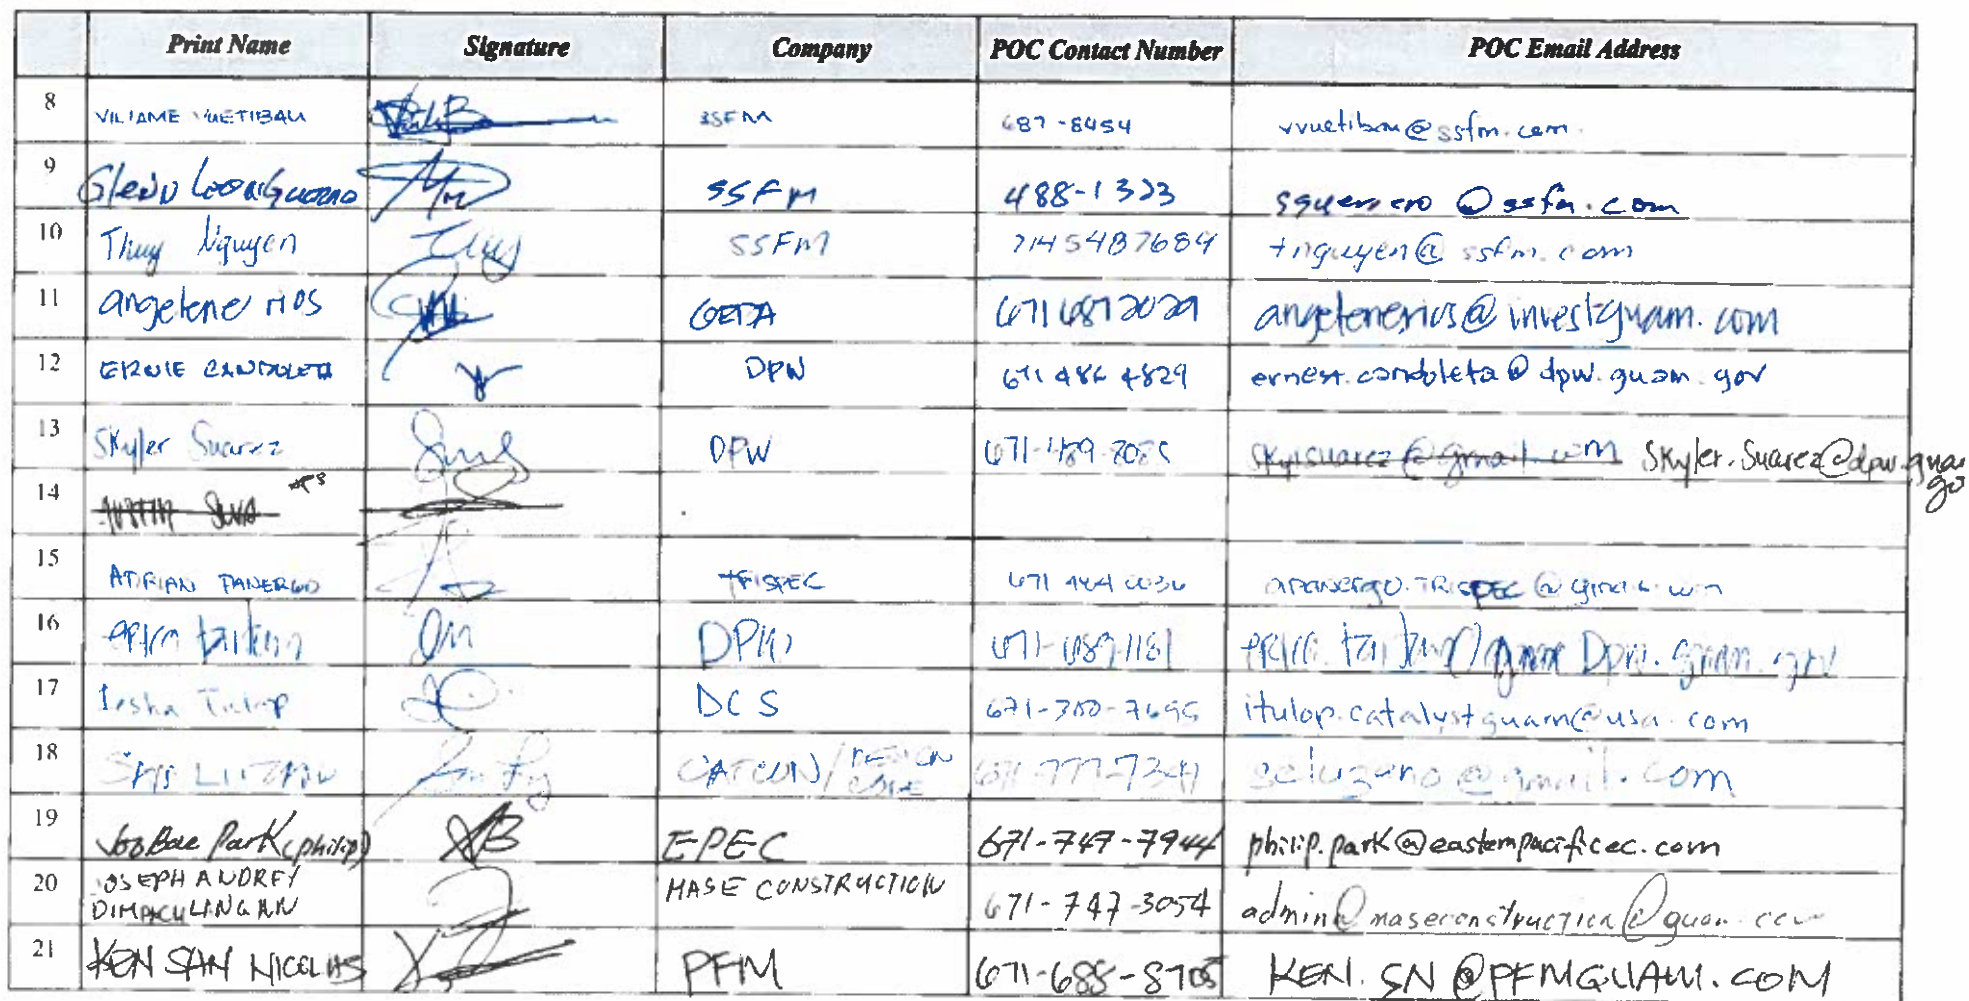 Print Name Signature Company POC Contact Number POC Email Address
8 VILIAME VUETIBAU SSFM 687-8454 vvuetibau@ssfm.com
9 Glenn Leon Guerrero SSFM 488-1323 sguerrero@ssfm.com
10 Thuy Nguyen SSFM 7145487684 tnguyen@ssfm.com
11 angelene rios GEDA 671 687 2029 angelenerios@investguam.com
12 ERNIE CANDOLETA DPW 671 486 4829 ernest.candoleta@dpw.guam.gov
13 Skyler Suarez DPW 671-489- skysuarez@gmail.com Skyler.Suarez@dpw.guam
go
14
15 ADRIAN PANERGO TRISPEC 671 apanergo.TRISPEC@gmail.com
16 DPW Dpw.guam.gov
17 Iesha Tulop DCS 671-300-7695 itulop.catalystguam@usa.com
18 CATCON/DESIGN 671-777- seluzano@gmail.com
19 JooBae Park (philip) EPEC 671-747-7944 philip.park@easternpacificec.com
20 JOSEPH ANDREY MASE CONSTRUCTION
DIMACULANGAN 671-747-3054 admin@maseconstruction@guam.com
21 KEN SAN NICOLAS PFM 671-688-8705 KEN.SN@PFMGUAM.COM